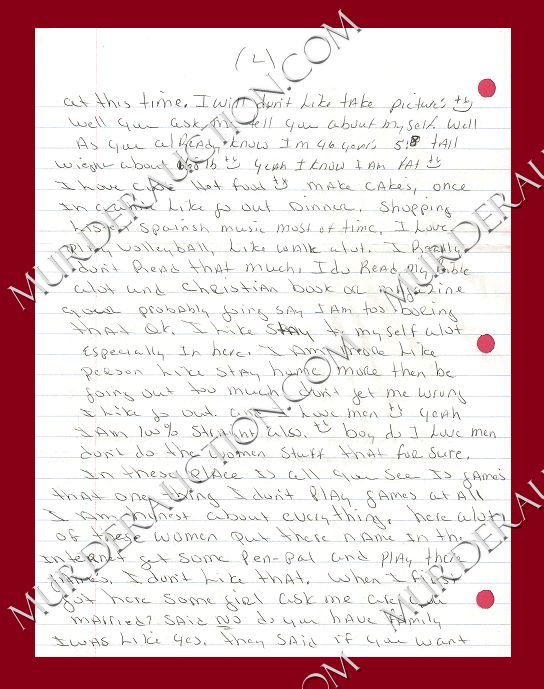 (2)
at this time. I will don't like take picture's
well you ask me tell you about myself. well
As you already know I'm 46 years 5'8 tAll
wieght about lb yeah I know I Am FAt
I have hot food make cakes, once
In like go out Dinner. Shopping
listen Spainsh music most of time. I Love
Play volleyball, Like walk alot. I Really
don't Read that much, I do Read my bible
alot and Christian book or magazine
your probably going say I Am too boring
that ok. I Like StAy to myself alot
Especially In here. I Am more Like
person Like stay home more then be
going out too much don't get me wrong
I Like go out. and I Love men yeah
I Am 100% straight also. boy do I Love men
don't do the women stuff that for sure.
In these place Is all you see Is games
that one thing I don't PlAy games at All
I Am honest about everything. here alot
of these women put there name In the
Internet get some pen-pal and play there
games. I don't Like that. when I first
got here some girl ask me are you
married? said NO do you have family
I was Like yes. they said if you want
MURDERAUCTION.COM